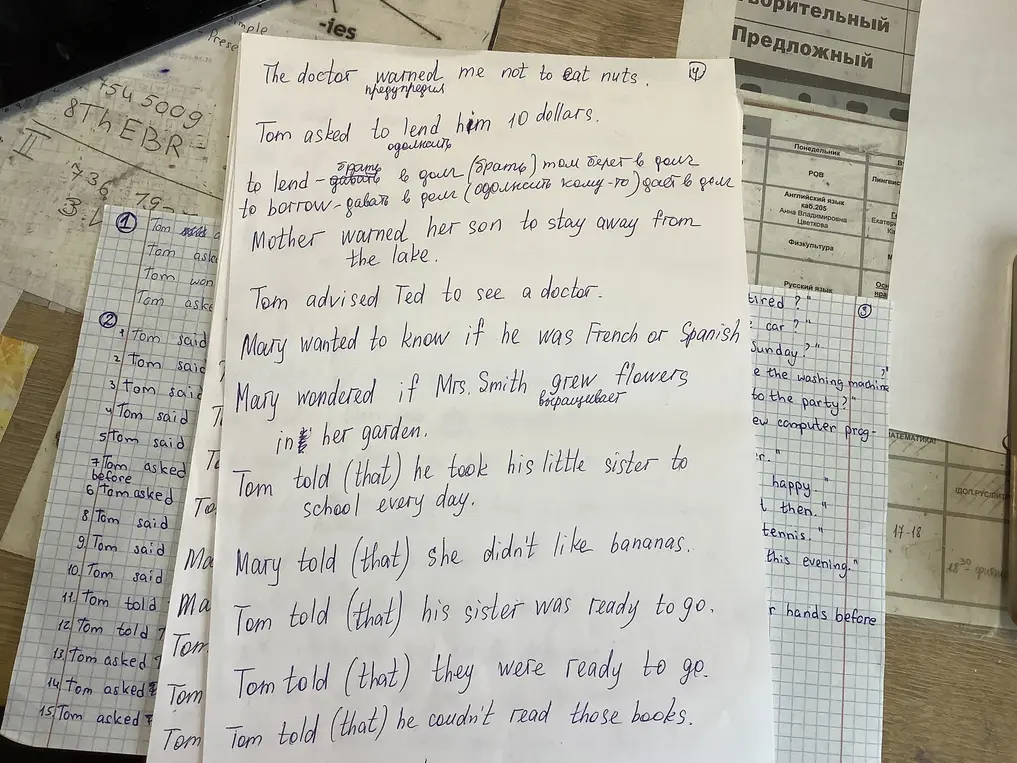 -ies
754 5009
8Th EBR
II
736
ворительный
Предложный
Понедельник
РОВ
Английский язык
каб.205
Анна Владимировна
Цветкова
Физкультура
Русский язык
17-18
14
The doctor warned me not to eat nuts.
предупредил
Tom asked to lend him 10 dollars.
одолжить
брать
to lend - давать в долг (брать) том берет в долг
to borrow - давать в долг (одолжить кому-то) даёт в долг
Mother warned her son to stay away from
the lake.
Tom advised Ted to see a doctor.
Mary wanted to know if he was French or Spanish
Mary wondered if Mrs. Smith grew flowers
выращивает
in her garden.
Tom told (that) he took his little sister to
school every day.
Mary told (that) she didn't like bananas.
Tom told (that) his sister was ready to go.
Tom told (that) they were ready to go.
Tom told (that) he coudn't read those books.
1
Tom
Tom aske
Tom wan
Tom aske
2
1 Tom said
2 Tom said
3 Tom said
4 Tom said
5 Tom said
7 Tom asked
before
6 Tom asked
8 Tom said
9 Tom said
10 Tom said
11 Tom told
12 Tom told
13 Tom asked
14 Tom asked
15 Tom asked
To
Ma
Ma
Tom
Tom
Tom
3
tired?"
car?"
Sunday?"
e the washing machine?"
to the party?"
ew computer prog-
happy."
then."
tennis."
this evening."
r hands before